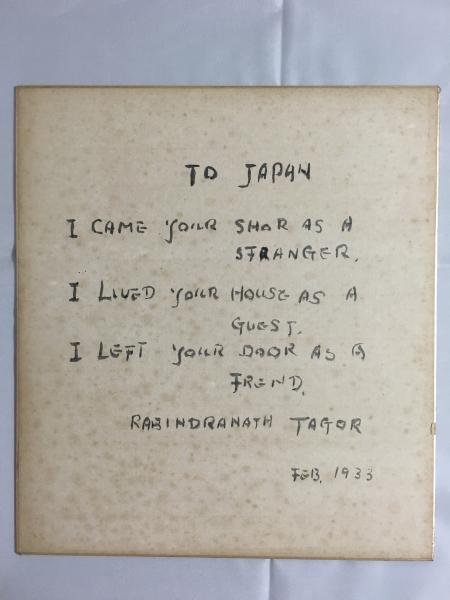 TO JAPAN
I CAME YOUR SHOR AS A
STRANGER.
I LIVED YOUR HOUSE AS A
GUEST.
I LEFT YOUR DOOR AS A
FREND.
RABINDRANATH TAGOR
FEB. 1933